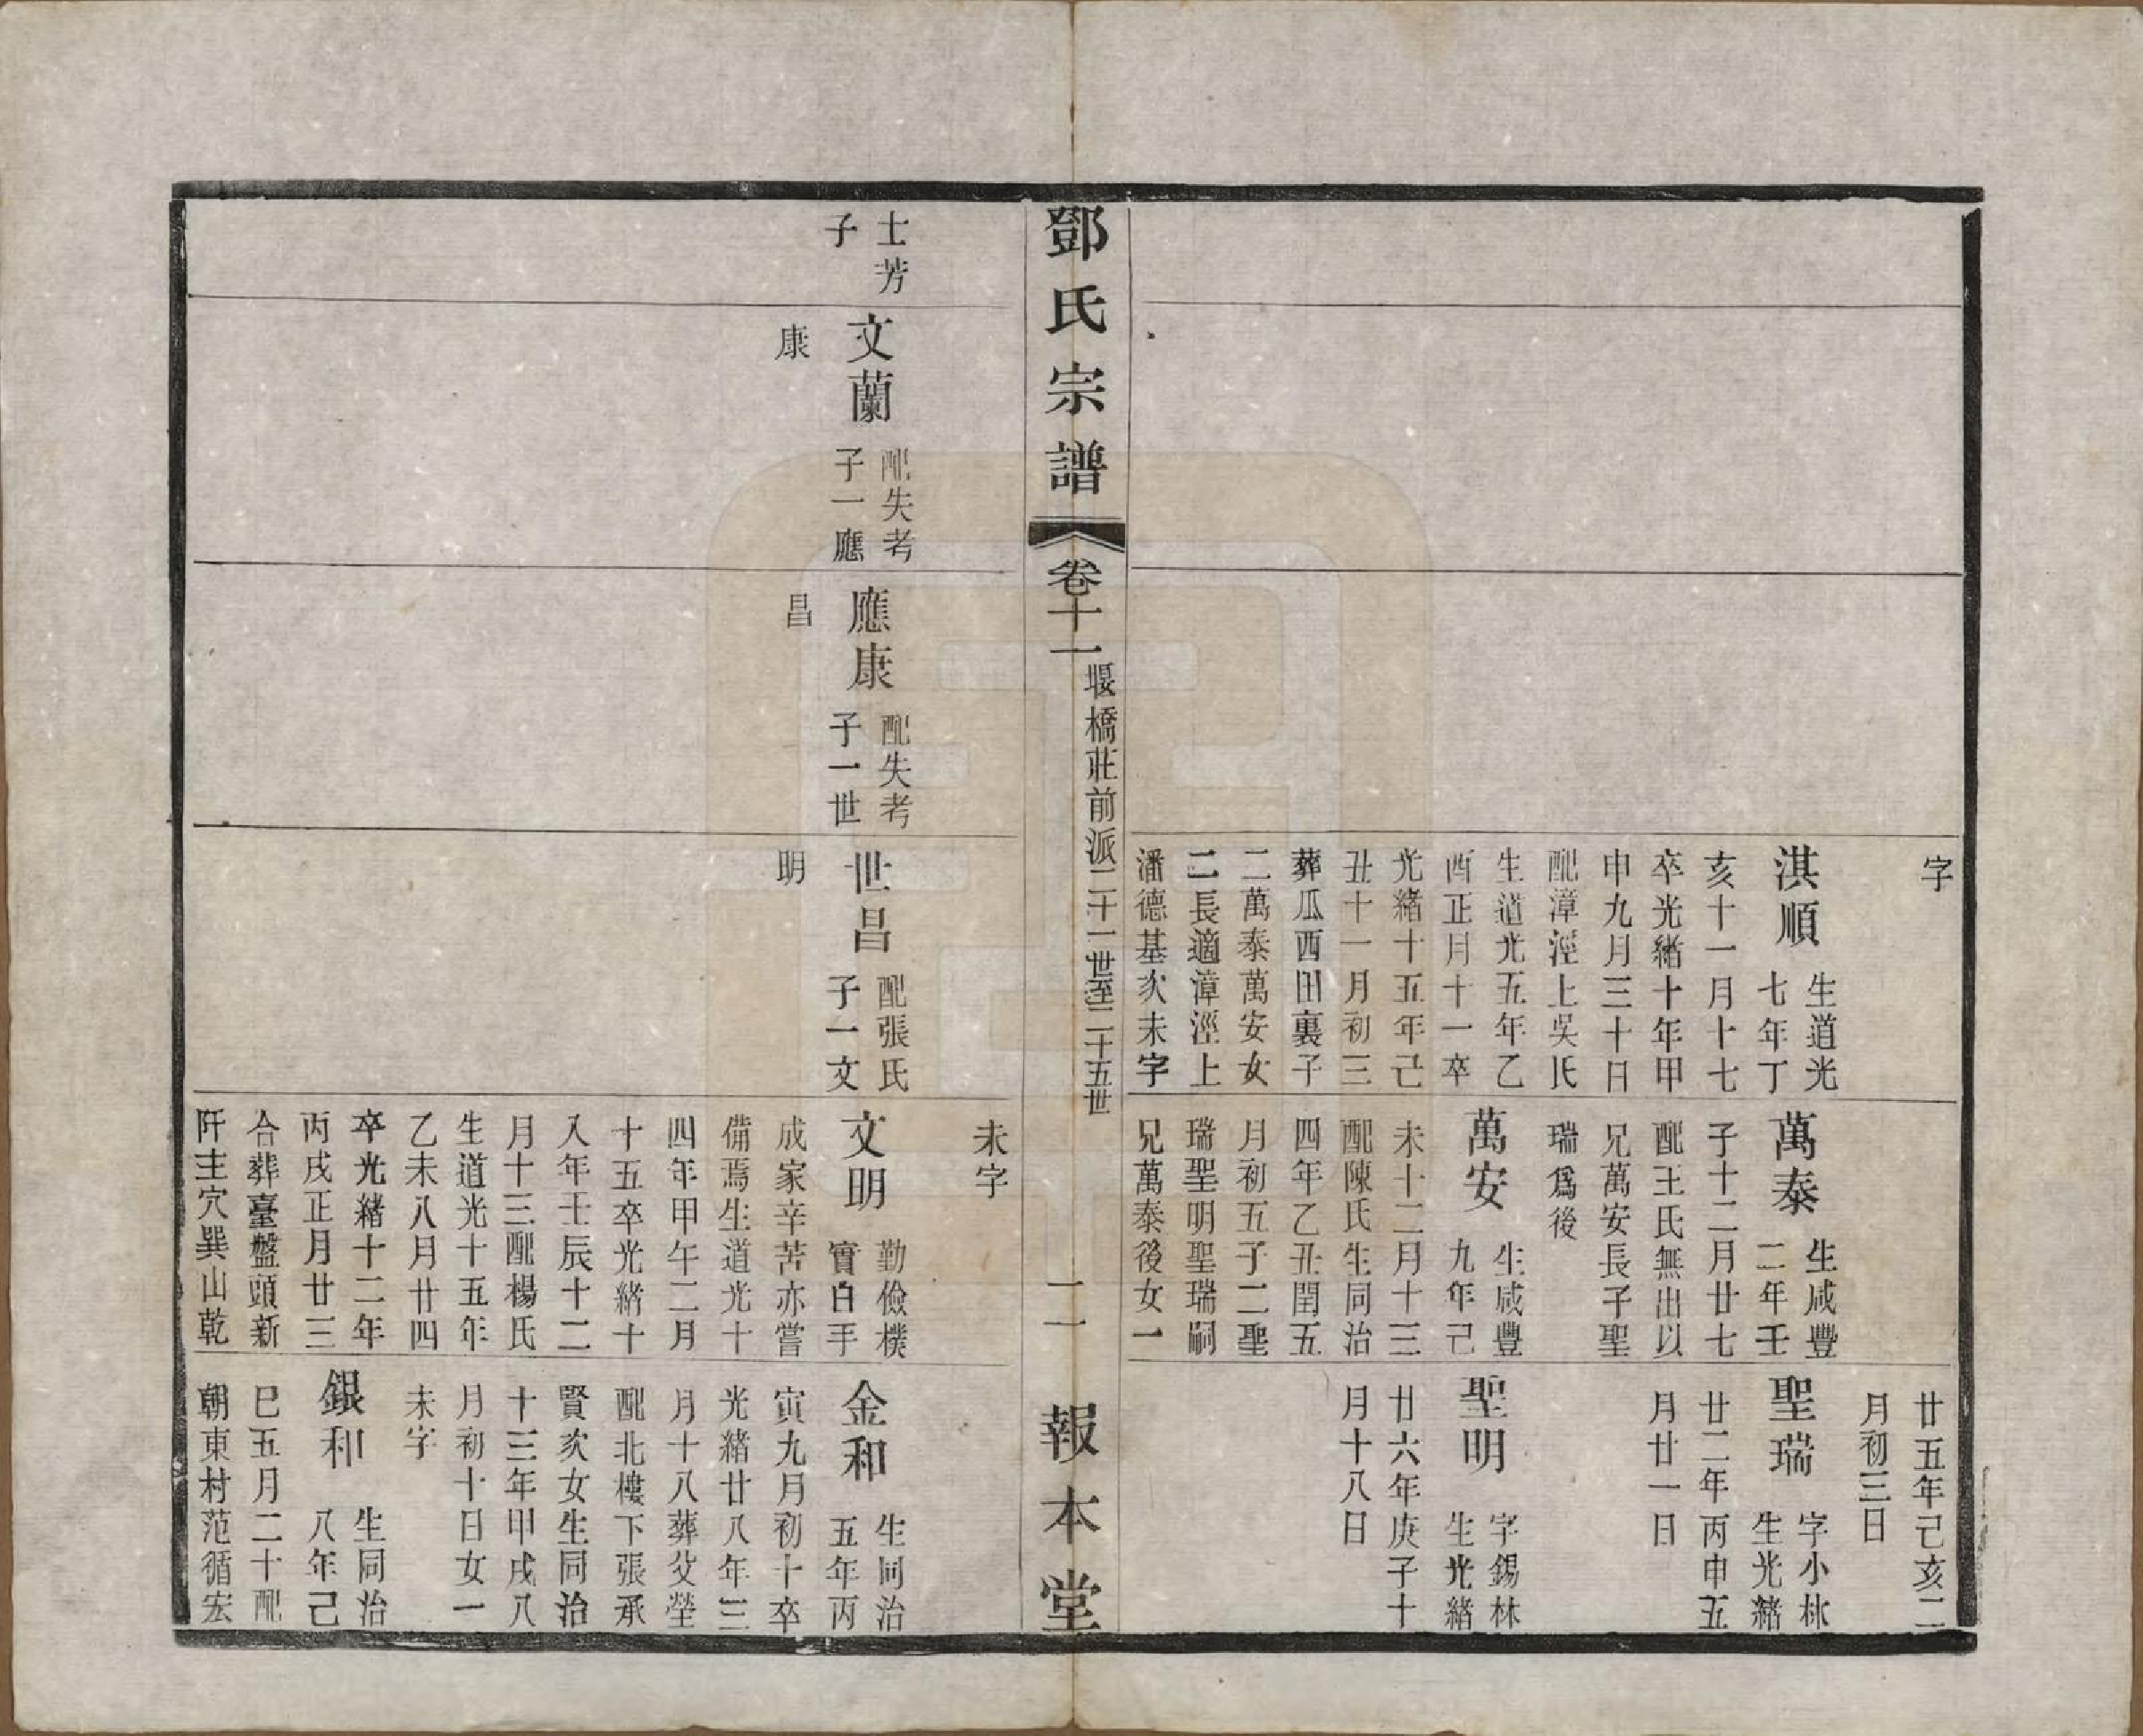 字
淇順
生道光
七年丁
亥十一月十七
卒光緒十年甲
申九月三十日
配漳涇上吳氏
生道光五年乙
酉正月十一卒
光緒十五年己
丑十一月初三
葬瓜西田裏子
二萬泰萬安女
二長適漳涇上
潘德基次未字
萬泰
生咸豐
二年壬
子十二月廿七
配王氏無出以
兄萬安長子聖
瑞爲後
萬安
生咸豐
九年己
未十二月十三
配陳氏生同治
四年乙丑閏五
月初五子二聖
瑞聖明聖瑞嗣
兄萬泰後女一
廿五年己亥二
月初三日
聖瑞
字小林
生光緒
廿二年丙申五
月廿一日
聖明
字錫林
生光緒
廿六年庚子十
月十八日
鄧氏宗譜
卷十一
堰橋莊前派二十一世至二十五世
二
報本堂
士芳
子
文蘭
配失考
子一應
康
應康
配失考
子一世
昌
世昌
配張氏
子一文
明
未字
文明
勤儉樸
實白手
成家辛苦亦嘗
備焉生道光十
四年甲午二月
十五卒光緒十
八年壬辰十二
月十三配楊氏
生道光十五年
乙未八月廿四
卒光緒十二年
丙戌正月廿三
合葬臺盤頭新
阡主穴巽山乾
金和
生同治
五年丙
寅九月初十卒
光緒廿八年三
月十八葬父塋
配北樓下張承
賢次女生同治
十三年甲戌八
月初十日女一
未字
銀和
生同治
八年己
巳五月二十配
朝東村范循宏